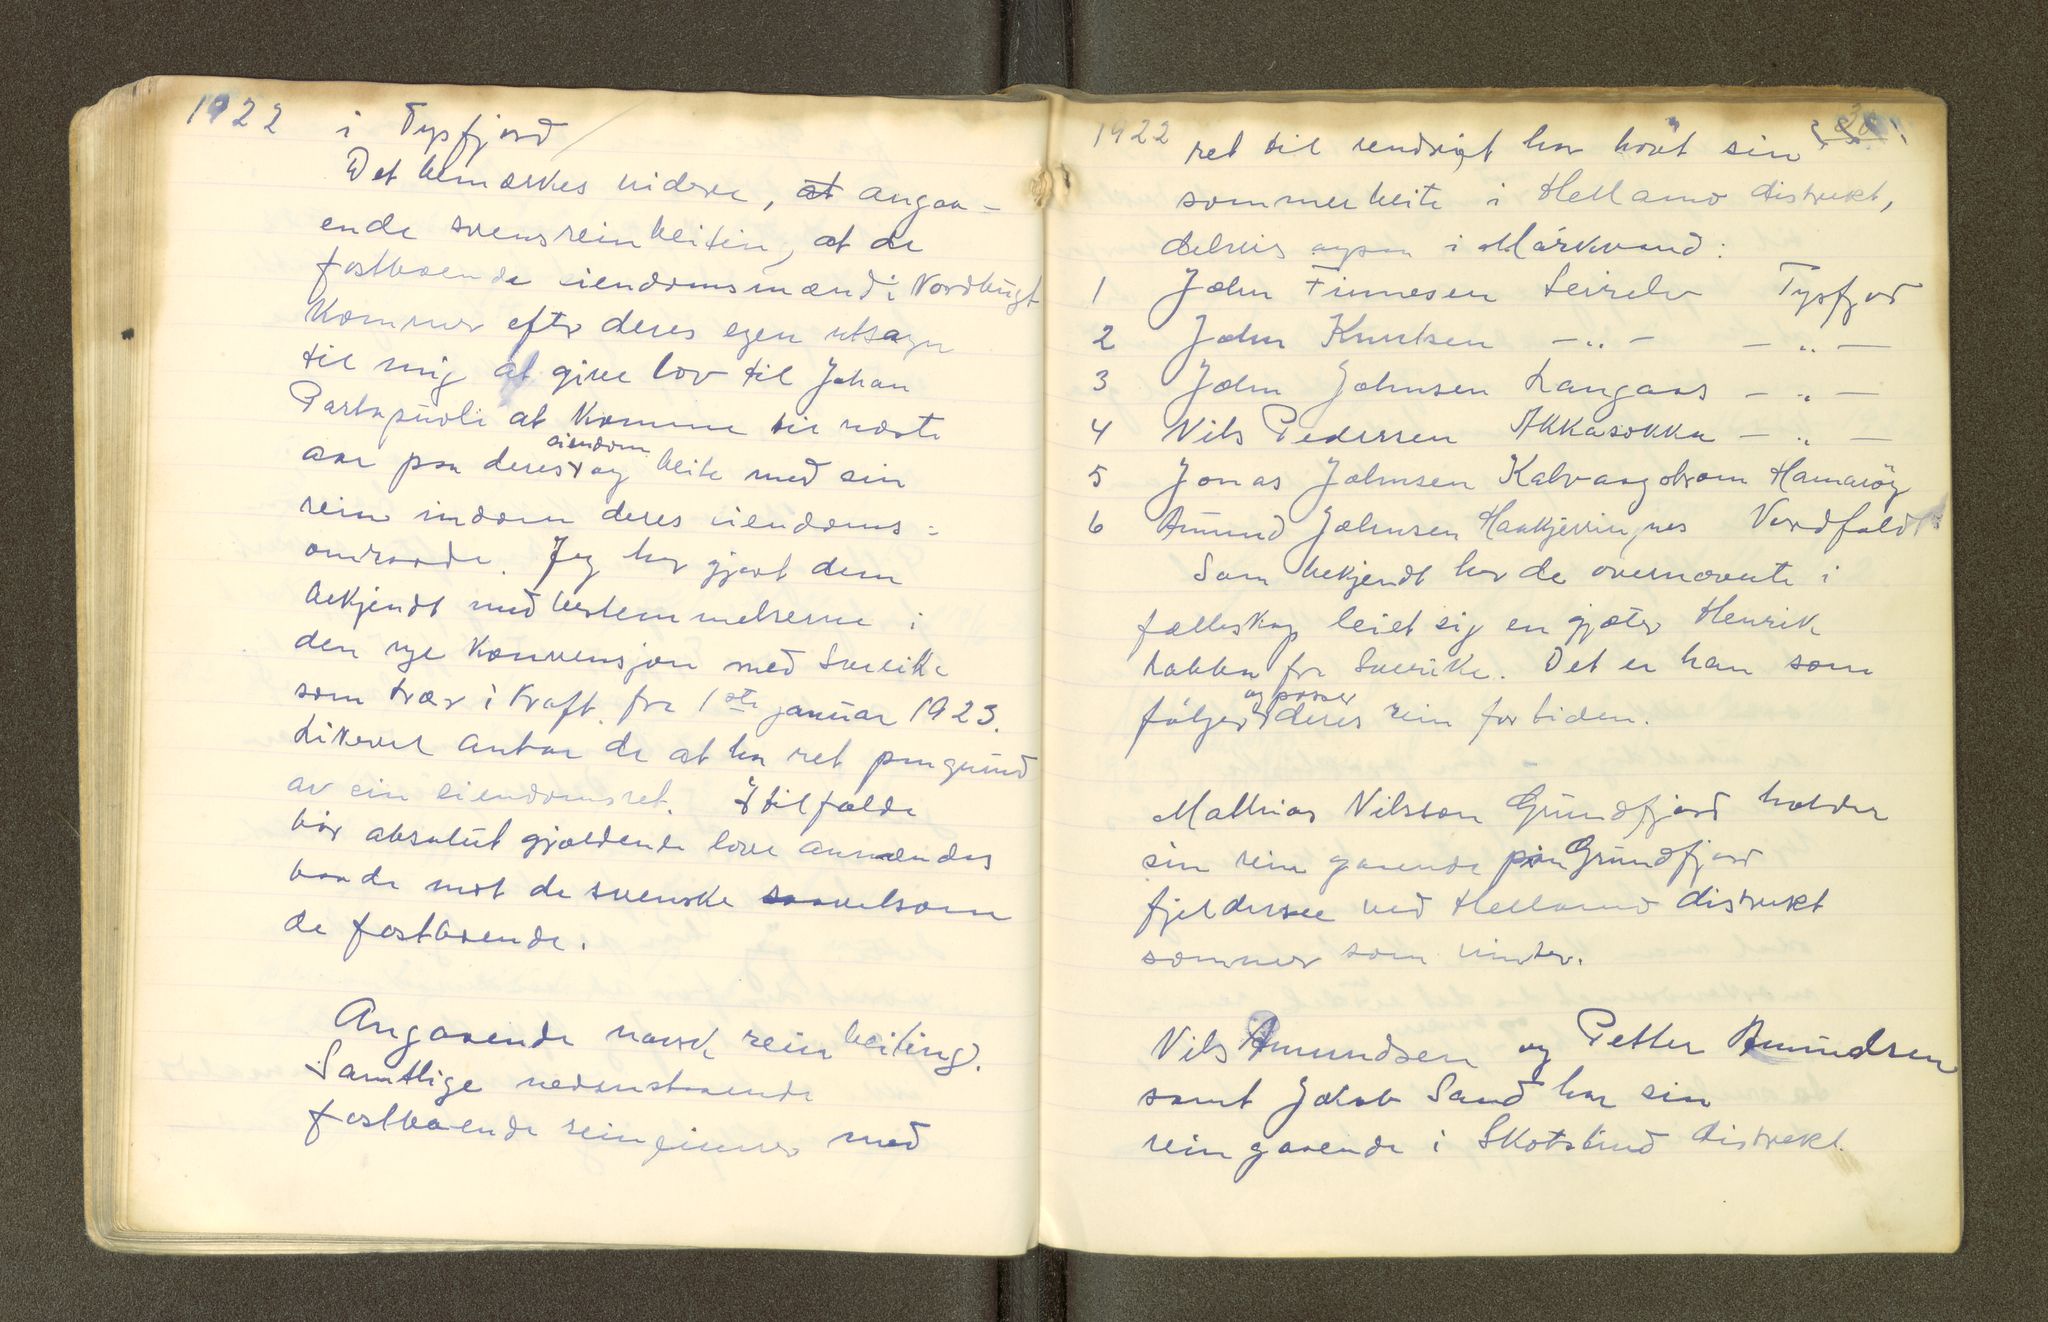 1922 i Tysfjord
Det bemærkes videre, at angaa-
ende svenskreinbeitin, at de
fastboende eiendomsmænd i Nordbugt
kommer efter deres egen utsagn
til mig at give lov til Johan
Partapuoli at komme til næste
aar paa deres eiendom og beite med sin
rein indom deres eiendoms=
omraade. Jeg har gjort dem
bekjendt med bestemmelserne i
den nye konvensjon med Sverike
som træs i kraft fra 1ste januar 1923.
Likevel antar de at ha ret paa grund
av sin eiendomsret. I tilfælde
bör absolut gjældende love anvendes
baade mot de svenske saavelsom
de fastboende.
Angaaende norsk reinbeiting.
Samtlige nedenstaaende
fastboende reineiere med
1922 ret til rendrigt har havt sin
sommerbeite i Hellamo distrekt,
delvis ogsaa i Márkvand:
1 John Finnesen Leirelv Tysfjord
2 John Knutsen -"- -"-
3 John Johnsen Langaas -"-
4 Nils Pedersen Akkasokka -"-
5 Jonas Johnsen Kalvaag obrom Hamaröy
6 Amund Johnsen Haakjerringnes Nordfold
Som bekjendt har de overnævnte i
fælleskap leiet sig en gjæter Henrik
Labba fra Sverike. Det er han som
fölger og passer deres rein for tiden.
Mathias Nilsson Grundfjord holder
sin rein gaaende paa Grundfjord
fjeldersee ved Hellamo distrekt
sommer som vinter.
Nils Amundsen og Petter Amundsen
samt Jakob Sand har sin
rein gaaende i Skotstind distrekt.